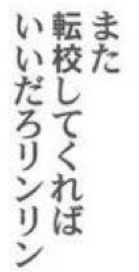 また
転校してくれば
いいだろリンリン